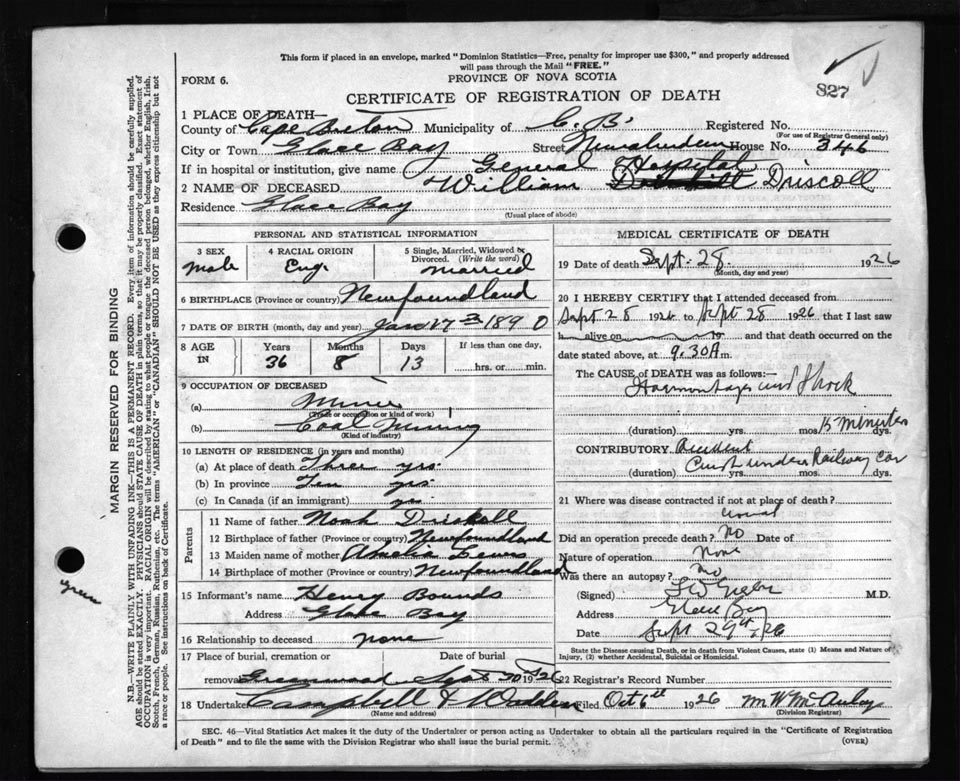 This form if placed in an envelope, marked "Dominion Statistics—Free, penalty for improper use $300," and properly addressed
will pass through the Mail "FREE."
FORM 6.
PROVINCE OF NOVA SCOTIA
827
CERTIFICATE OF REGISTRATION OF DEATH
1 PLACE OF DEATH—
County of Cape Breton Municipality of C. B. Registered No.
(For use of Registrar General only)
City or Town Glace Bay Street New Aberdeen House No. 346
If in hospital or institution, give name General Hospital
2 NAME OF DECEASED William Driscoll
Residence Glace Bay
(Usual place of abode)
PERSONAL AND STATISTICAL INFORMATION
3 SEX
male
4 RACIAL ORIGIN
Eng.
5 Single, Married, Widowed or
Divorced. (Write the word)
married
6 BIRTHPLACE (Province or country) Newfoundland
7 DATE OF BIRTH (month, day and year) Jan 17 1890
8 AGE
IN
Years
36
Months
8
Days
13
If less than one day,
hrs. or min.
9 OCCUPATION OF DECEASED
(a) Miner
(Trade or occupation or kind of work)
(b) Coal Mining
(Kind of industry)
10 LENGTH OF RESIDENCE (in years and months)
(a) At place of death Three yrs.
(b) In province Ten yrs.
(c) In Canada (if an immigrant) yrs.
Parents
11 Name of father Noah Driscoll
12 Birthplace of father (Province or country) Newfoundland
13 Maiden name of mother
14 Birthplace of mother (Province or country) Newfoundland
15 Informant's name Henry Bounds
Address Glace Bay
16 Relationship to deceased none
17 Place of burial, cremation or
removal Greenwood
Date of burial
Sept 30 1926
18 Undertaker Campbell & Wadden
(Name and address)
MEDICAL CERTIFICATE OF DEATH
19 Date of death Sept. 28. 1926
(Month, day and year)
20 I HEREBY CERTIFY that I attended deceased from
Sept 28 1926 to Sept 28 1926 that I last saw
h alive on 19 and that death occurred on the
date stated above, at 9.30 A m.
The CAUSE of DEATH was as follows:—
Haemorrhage and Shock
(duration) yrs. mos. 15 minutes dys.
CONTRIBUTORY Accident
Crush under Railway Car
(duration) yrs. mos. dys.
21 Where was disease contracted if not at place of death?
Did an operation precede death? No Date of
Nature of operation None
Was there an autopsy? no
(Signed) M.D.
Address Glace Bay
Date Sept 29th, 26
State the Disease causing Death, or in death from Violent Causes, state (1) Means and Nature of
Injury, (2) whether Accidental, Suicidal or Homicidal.
22 Registrar's Record Number
Filed Oct 6th 1926 M W McAulay
(Division Registrar)
SEC. 46—Vital Statistics Act makes it the duty of the Undertaker or person acting as Undertaker to obtain all the particulars required in the "Certificate of Registration
of Death" and to file the same with the Division Registrar who shall issue the burial permit.
(OVER)
MARGIN RESERVED FOR BINDING
N.B.—WRITE PLAINLY WITH UNFADING INK—THIS IS A PERMANENT RECORD. Every item of information should be carefully supplied.
AGE should be stated EXACTLY. PHYSICIANS should STATE CAUSE OF DEATH in plain terms, so that it may be properly classified. Exact statement of
OCCUPATION is very important. RACIAL ORIGIN will be described by stating to what people or tongue the deceased person belonged, whether English, Irish,
Scotch, French, German, Russian, Ruthenian, etc. The terms "AMERICAN" or "CANADIAN" SHOULD NOT BE USED as they express citizenship but not
a race or people. See instructions on back of Certificate.